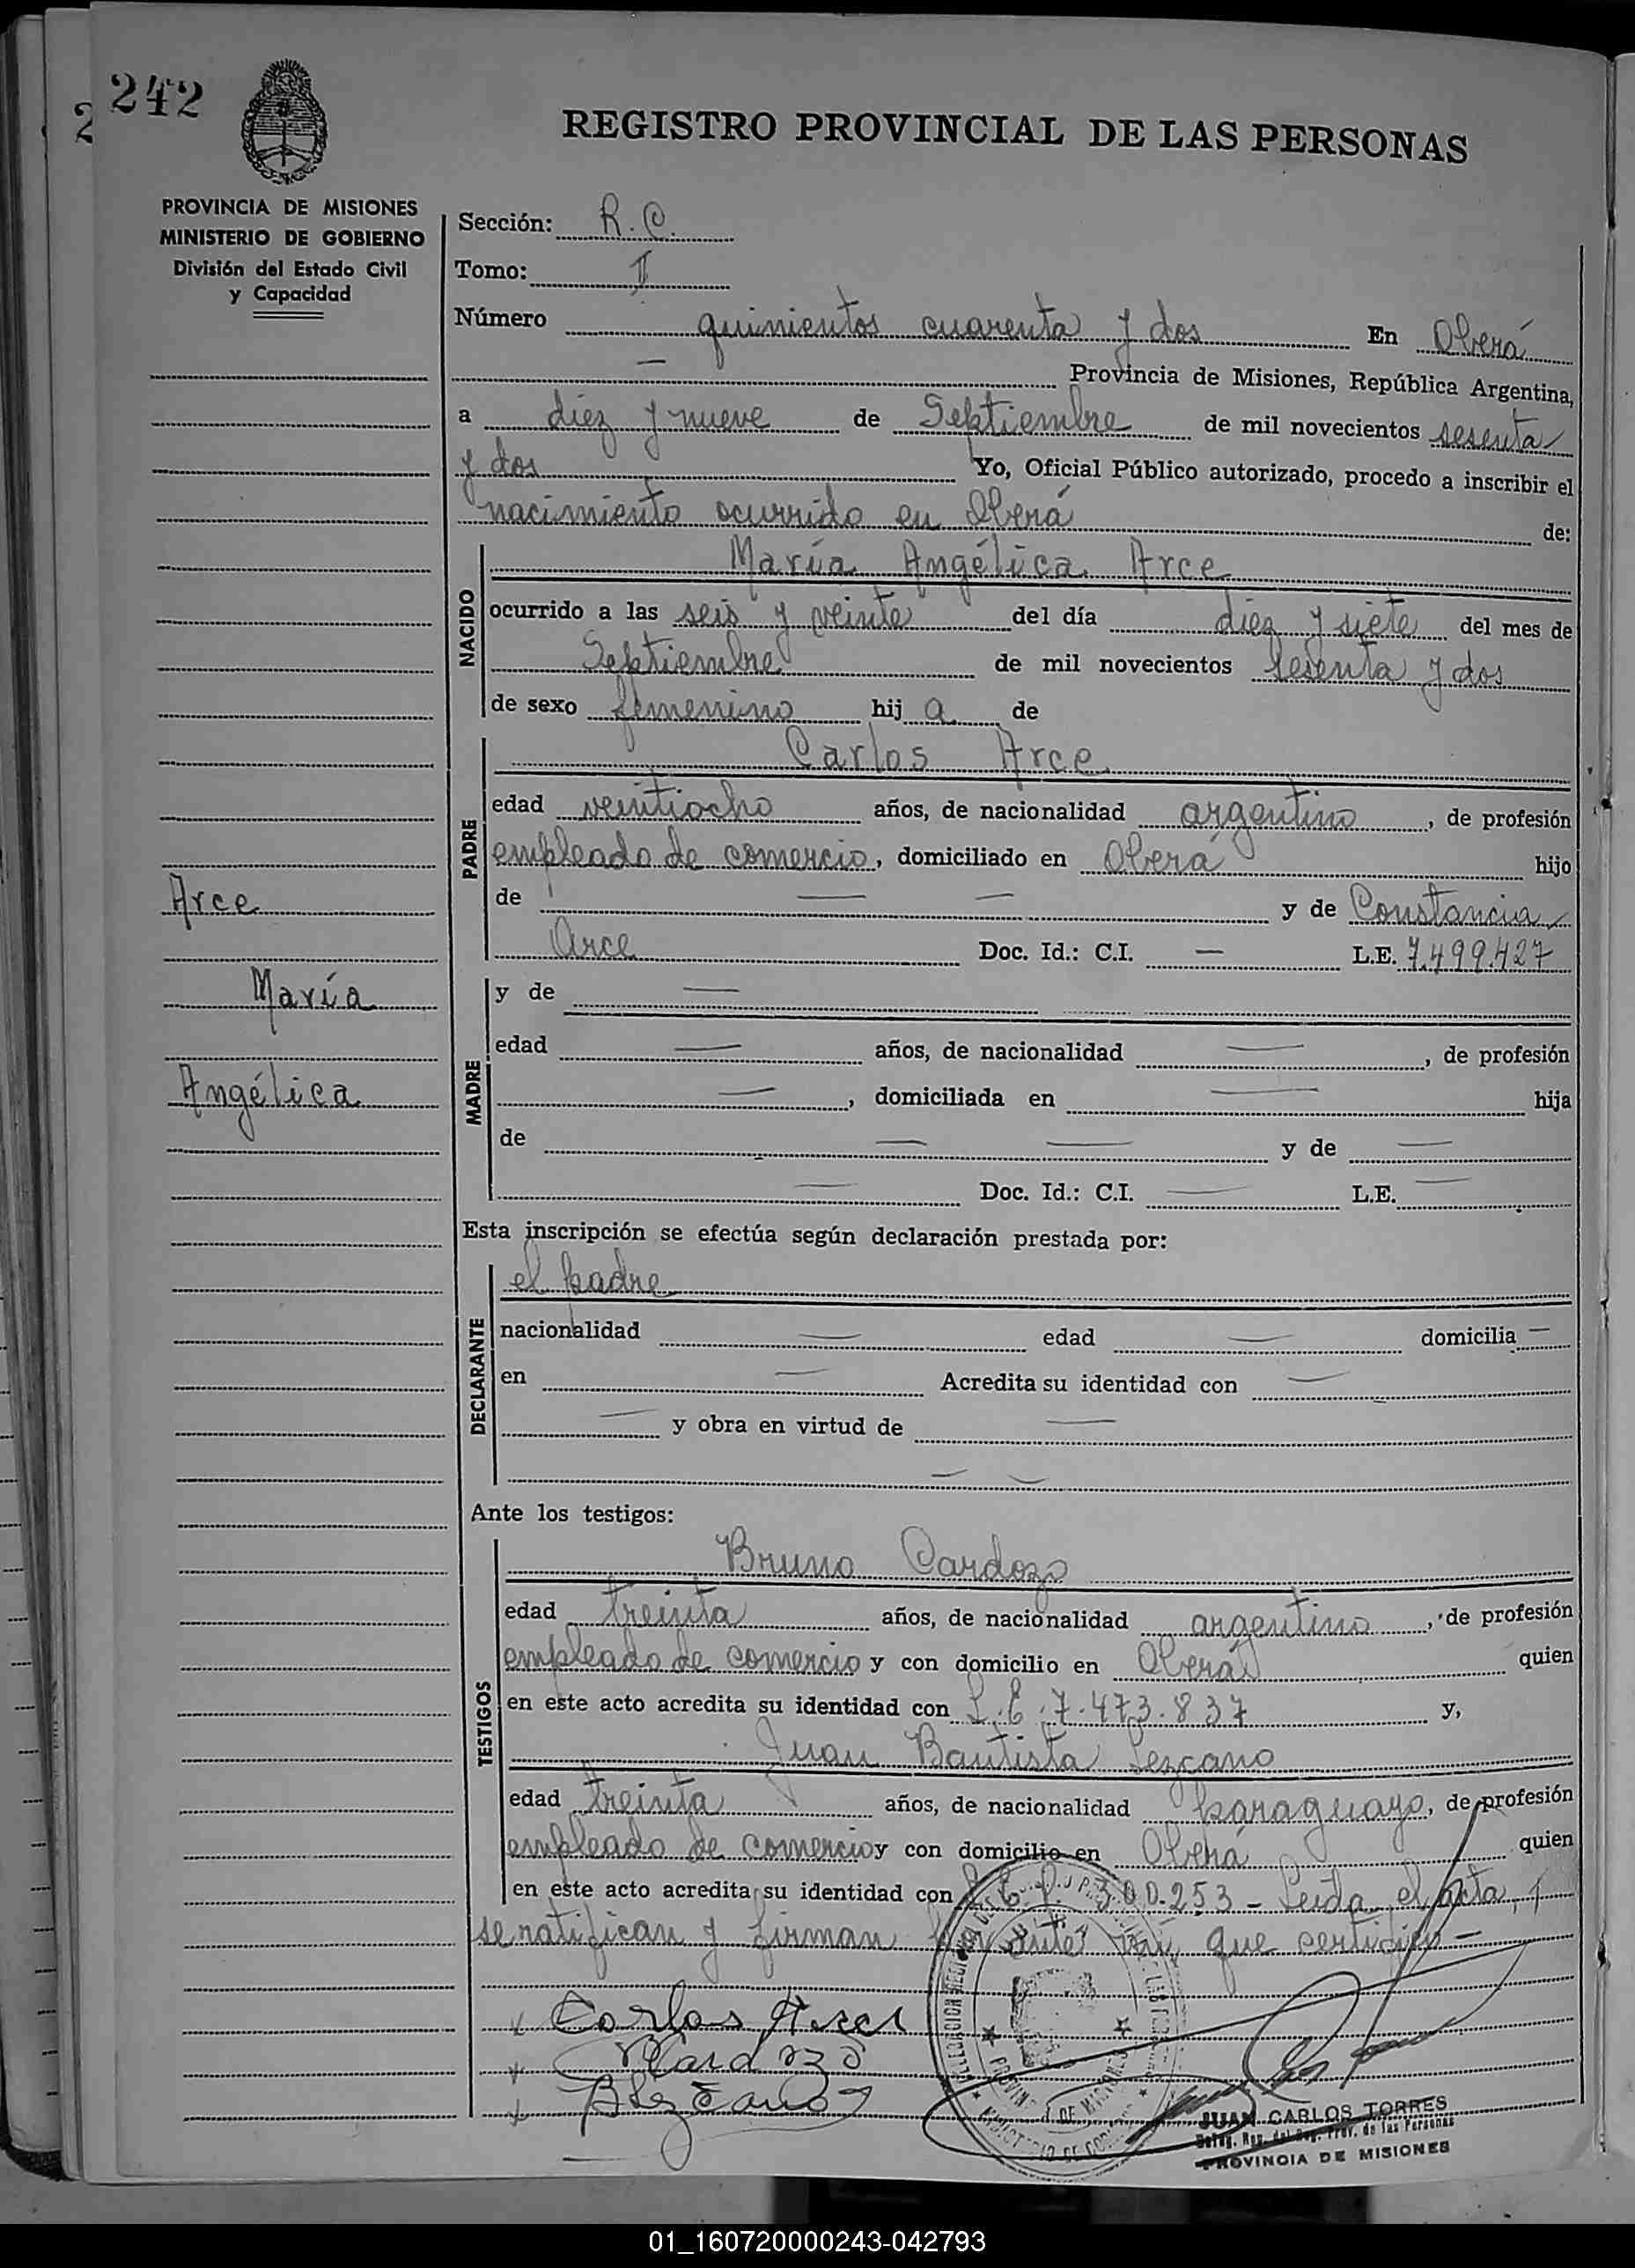 242
REGISTRO PROVINCIAL DE LAS PERSONAS
PROVINCIA DE MISIONES
MINISTERIO DE GOBIERNO
División del Estado Civil
y Capacidad
Sección: R. C.
Tomo: II
Número quinientos cuarenta y dos En Oberá
— Provincia de Misiones, República Argentina,
a diez y nueve de Septiembre de mil novecientos sesenta
y dos Yo, Oficial Público autorizado, procedo a inscribir el
nacimiento ocurrido en Oberá de:
NACIDO
María Angélica Arce
ocurrido a las seis y veinte del día diez y siete del mes de
Septiembre de mil novecientos sesenta y dos
de sexo femenino hij a de
PADRE
Carlos Arce
edad veintiocho años, de nacionalidad argentino, de profesión
empleado de comercio, domiciliado en Oberá hijo
de — — y de Constancia
Arce Doc. Id.: C.I. — L.E. 7.499.427
Arce
María
Angélica
MADRE
y de —
edad — años, de nacionalidad —, de profesión
—, domiciliada en — hija
de — — y de —
— Doc. Id.: C.I. — L.E. —
Esta inscripción se efectúa según declaración prestada por:
DECLARANTE
el padre
nacionalidad — edad — domicilia —
en — Acredita su identidad con —
— y obra en virtud de —
— —
Ante los testigos:
TESTIGOS
Bruno Cardozo
edad treinta años, de nacionalidad argentino, de profesión
empleado de comercio y con domicilio en Oberá quien
en este acto acredita su identidad con L.E. 7.473.837 y,
Juan Bautista Lezcano
edad treinta años, de nacionalidad paraguayo, de profesión
empleado de comercio y con domicilio en Oberá quien
en este acto acredita su identidad con 300.253 - Leida el acta,
se ratifican y firman ante mi que certifico -
Carlos Arce
BCardozo
BLezcano
JUAN CARLOS TORRES
Deleg. Reg. del Reg. Prov. de las Personas
PROVINCIA DE MISIONES
01_160720000243-042793